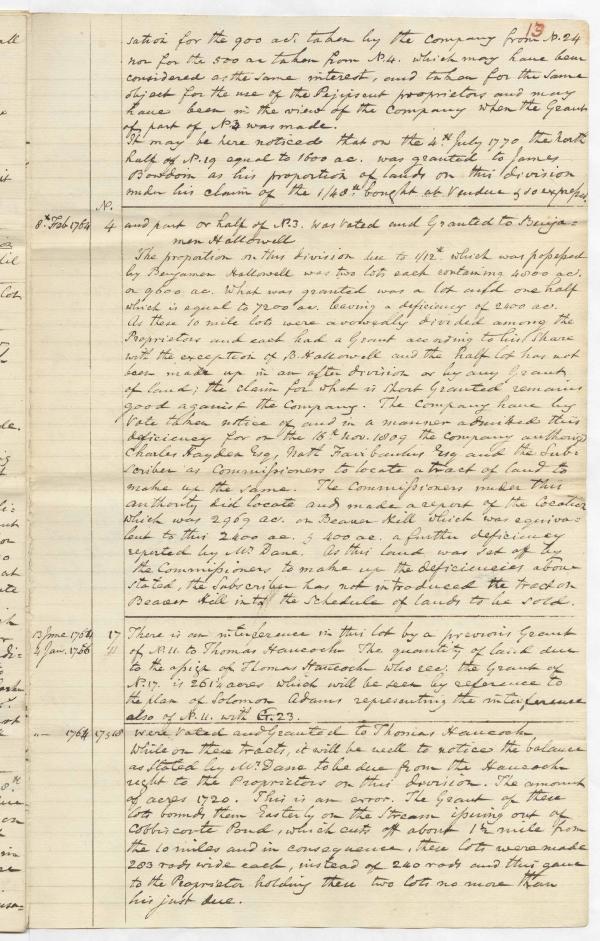 13
sation for the 900 ac. taken by the Company from N. 24
nor for the 500 ac taken from N. 4. which may have been
considered as the same interest, and taken for the same
object for the use of the Pejepscut proprietors and may
have been in the view of the Company when the Grant
of part of N. 3 was made.
It may be here noticed that on the 4th July 1770 the north
half of N. 19 equal to 1600 ac. was granted to James
Bowdoin as his proportion of lands on this division
under his claim of the 1/48th bought at Vendue & so expressd.
N.
8th Feb 1764 4 and part or half of N. 3. was Voted and Granted to Benja=
men Hallowell
The proportion on this division due to 1/12th which was possessed
by Benjamen Hallowell was two lots each containing 4800 ac.
or 9600 ac. What was granted was a lot and one half
which is equal to 7200 ac. leaving a deficiency of 2400 ac.
As these 10 mile lots were avowedly divided among the
Proprietors and each had a Grant according to his Share
with the exception of B. Hallowell and the half lot has not
been made up in an after division or by any Grant
of land; the claim for what is short Granted remains
good against the Company. The Company have by
Vote taken notice of and in a manner admitted this
deficiency for on the 15th Nov. 1809 the Company authorizd
Charles Hayden Esq, Nath Fairbanks Esq and the Sub=
scriber as Commissioners to locate a tract of land to
make up the same. The Commissioners under this
authority did locate and made a report of the location
which was 2969 ac. on Beaver Hill which was equiva=
lent to this 2400 ac. & 400 ac. a further deficiency
reported by Mr Dane. As this land was set off by
the Commissioners to make up the deficiencies above
stated, the Subscriber has not introduced the tract on
Beaver Hill into the Schedule of lands to be sold.
13 June 1764 17 There is an interference in this lot by a previous Grant
4 Jan. 1766 11 of N. 11. to Thomas Hancock The quantity of land due
to the assigns of Thomas Hancock who rec. the Grant of
N. 17. is 2614 acres which will be seen by reference to
the plan of Solomon Adams representing the interference
also of N. 11. with Gr. 23.
" — 1764 17 & 18 were Voted and Granted to Thomas Hancock
While on these tracts, it will be well to notice the balance
as Stated by Mr Dane to be due from the Hancock
right to the Proprietors on this division. The amount
of acres 1720. This is an error. The Grant of these
lots bounds them Easterly on the Stream issuing out of
Cobbiscoute Pond, which cuts off about 1 1/2 mile from
the 10 miles and in consequence, these lots were made
283 rods wide each, instead of 240 rods and this gave
to the Proprietor holding these two lots no more than
his just due.